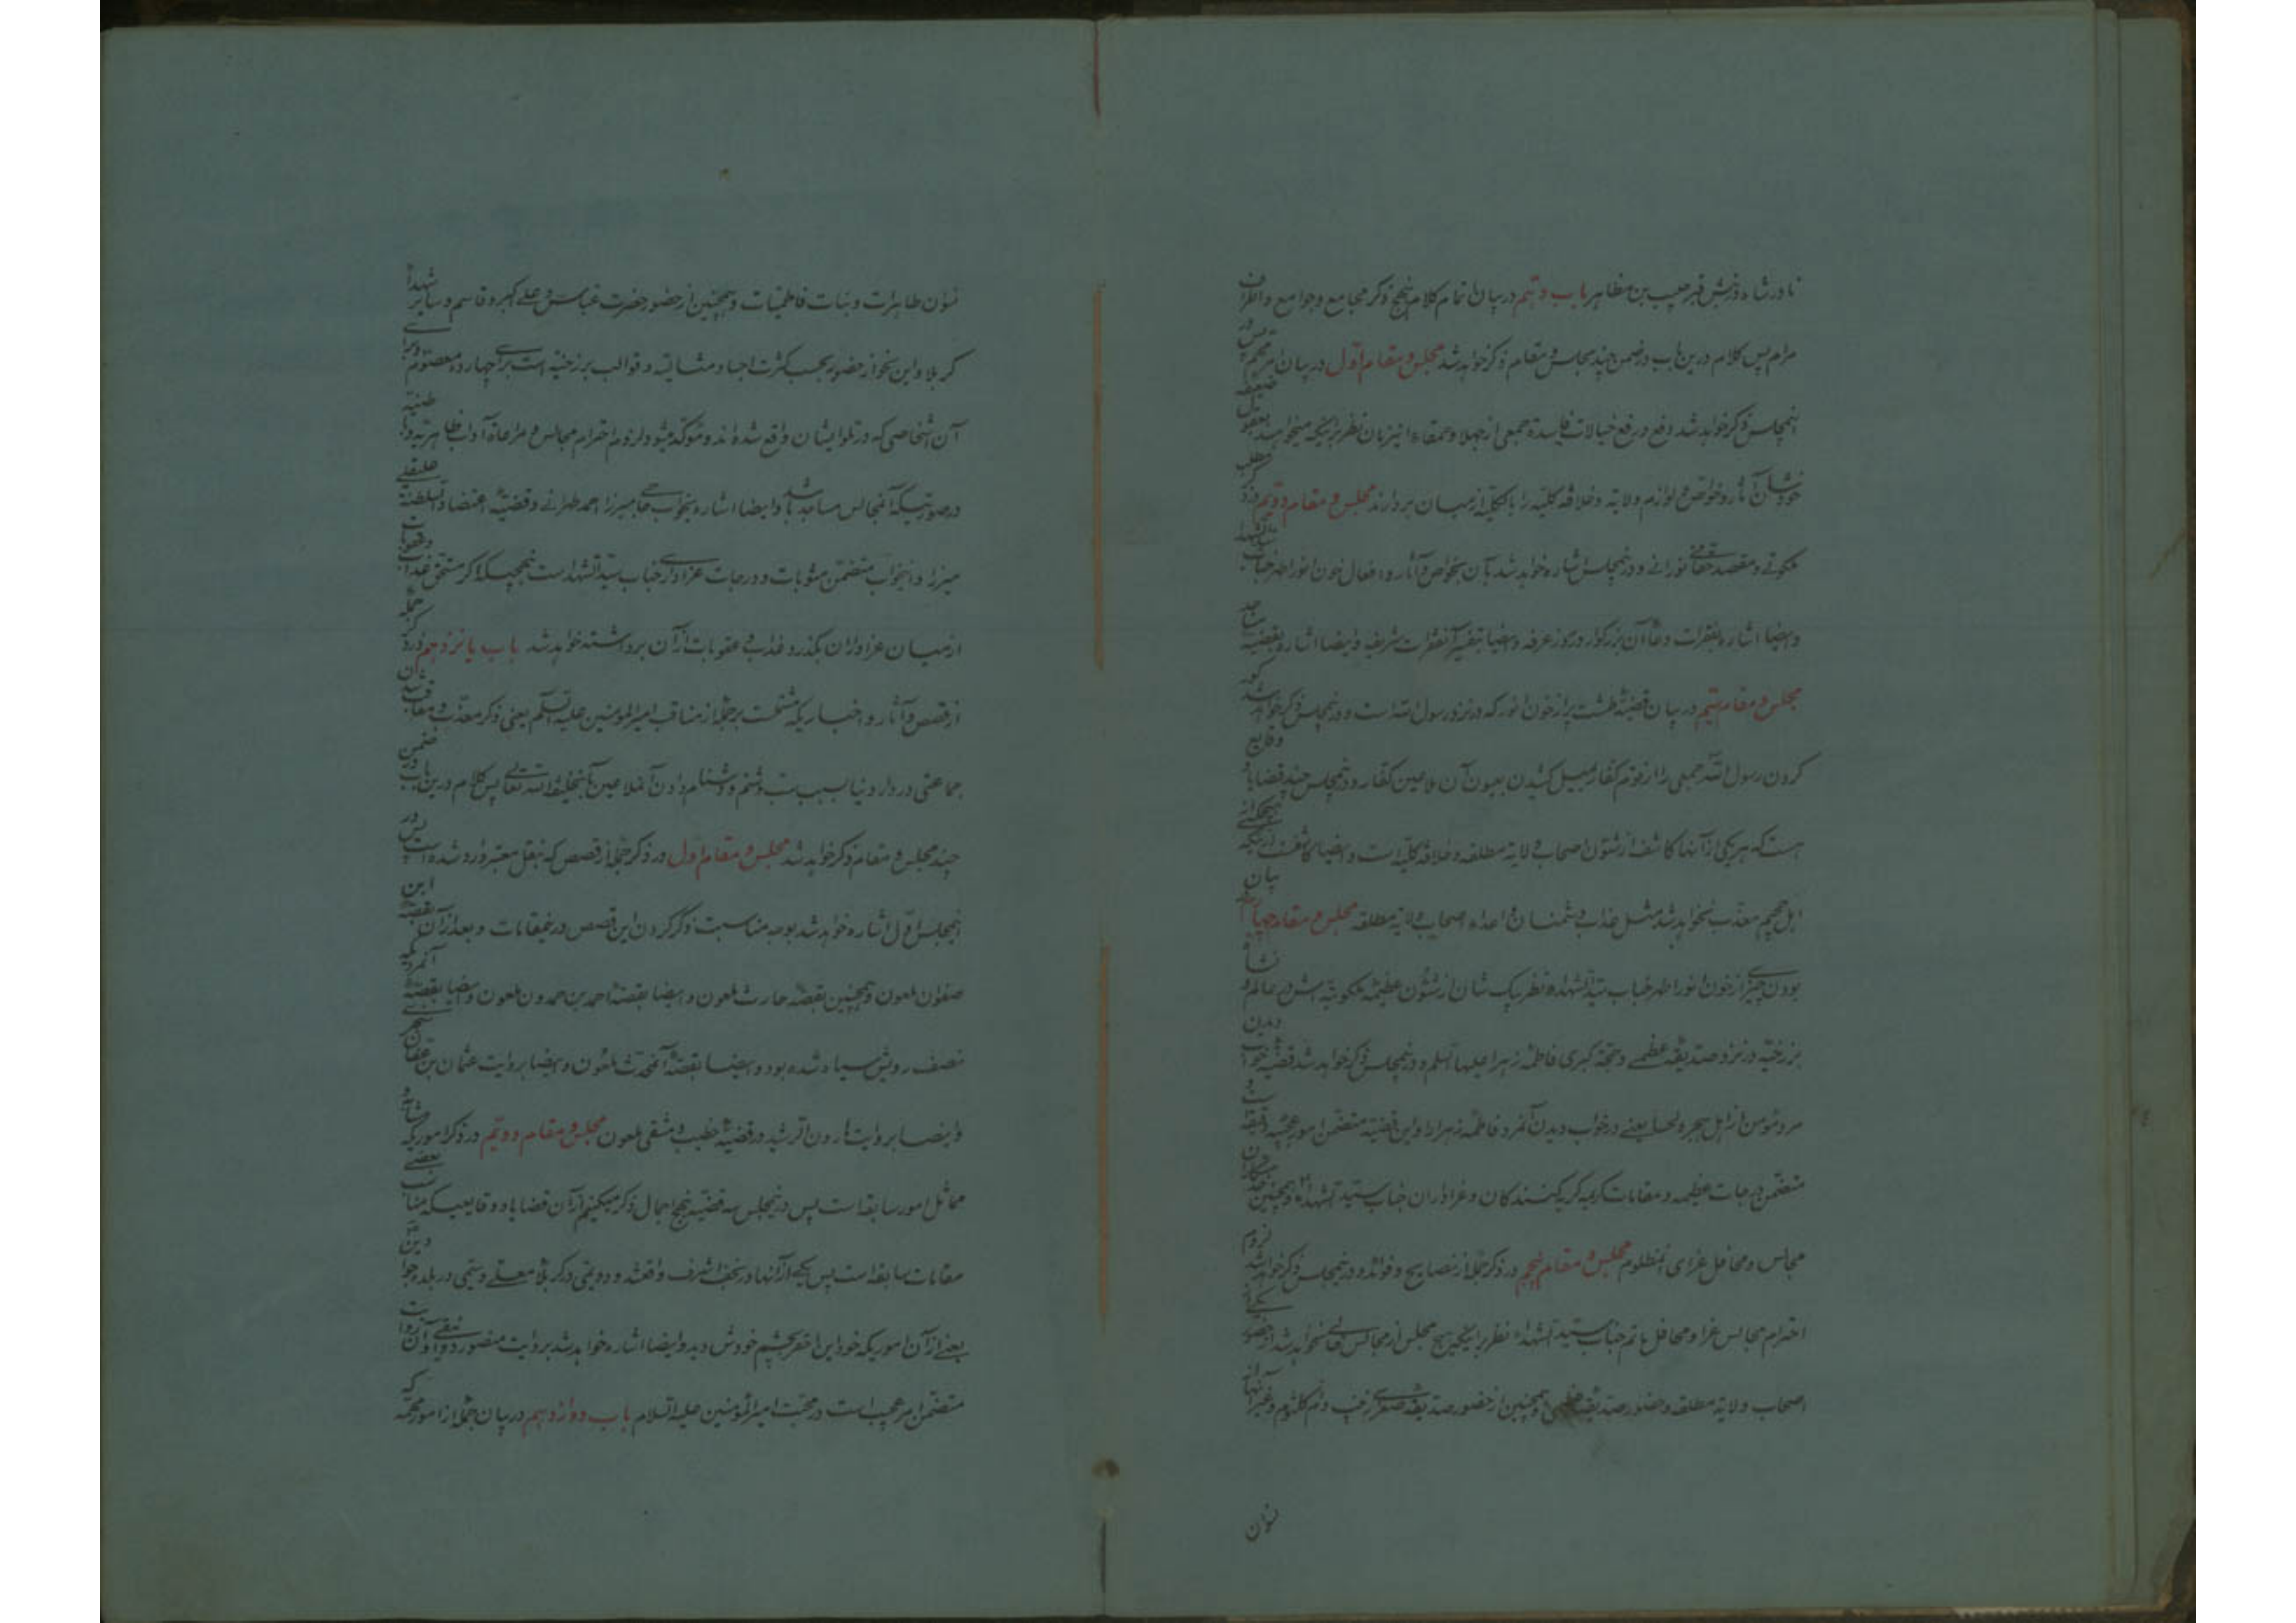 نادرشاه در نبش قبر حبیب بن مظاهر باب دهم در بیان تمام کلام بنهج ذکر مجامع وجوامع و اطراف
مرام پس کلام درین باب در ضمن چند مجلس و مقام ذکر خواهد شد مجلس و مقام اول در بیان امر مهم پس در
اینمجلس ذکر خواهد شد دفع و رفع خیالات فاسدة جمعی از جهلا و حمقاء نظر باینکه میخواهند بعقول ضعیفه
خودشان آثار و خواص و لوازم ولایة و خلافة کلیة را بالکلیة از میان بردارند مجلس و مقام دویم در ذکر مطلب
ملکوتی و مقصد حقانی نورانی و در اینمجلس اشاره خواهد شد بآن بخواص و آثار و افعال خون انور اطهر جناب سید الشهدا
و ایضا اشاره بفقرات دعاء آن بزرگوار در روز عرفه و ایضا بتفسیر آنفقرات شریفه و ایضا اشاره بقضیه
مجلس و مقام سیم در بیان قضیه طشت پر از خون انور که در نزد رسول الله است و در اینمجلس ذکر خواهد شد
کردن رسول الله جمعی را از قوم کفار بمیل کشیدن بعیون آن ملاعین کفار و در اینمجلس چند قضایا و وقایع
است که هر یکی از آنها کاشف از شئون اصحاب ولایة مطلقه و خلافة کلیة است و ایضا کاشف از اینکه هیچیکی از
اهل جحیم معذب نخواهد شد مثل عذاب دشمنان و اعداء اصحاب ولایة مطلقه مجلس و مقام چهارم در بیان
بودن چیزی از خون انور اطهر جناب سید الشهداء نظر بیک شأن از شئون عظیمه ملکوتیه اش در عالم و نشأة
برزخیه در نزد صدیقه عظمی و حجة کبری فاطمه زهرا علیها السلم و در اینمجلس ذکر خواهد شد قضیه خواب دیدن
مرد مؤمن از اهل هجر و لحسا یعنی در خواب دیدن آنمرد فاطمه زهرا را و این قضیه متضمن امور عجیبه دقیقه است و
متضمن درجات عظیمه و مقامات کریمه گریه کنندکان و عزاداران جناب سید الشهداء و همچنین
مجالس و محافل عزای آنمظلوم مجلس و مقام پنجم در ذکر جمله از نصایح و فوائد و در اینمجلس ذکر خواهد شد لزوم
احترام مجالس عزا و محافل ماتم جناب سید الشهداء نظر باینکه هیچ مجلس از مجالس خالی نخواهد شد از حضور
اصحاب ولایة مطلقه و حضور صدیقه عظمی و همچنین از حضور صدیقه صغری زینب و ام کلثوم و غیر آنها از
نسوان
نسوان طاهرات و بنات فاطمیات و همچنین از حضور حضرت عباس و علی اکبر و قاسم و سایر شهداء
کربلا و این نحو از حضور بحسب کثرت اجساد مثالیه و قوالب برزخیه است برای چهارده معصوم و برای
آن اشخاصی که در تلو ایشان واقع شده اند و مؤکد میشود لزوم احترام مجالس و مراعاة آداب ظاهریه و باطنیه
در صورتیکه آنمجالس مساجد باشد و ایضا اشاره بخواب حاجی میرزا احمد طهرانی و قضیه اعتضاد السلطنه علیقلی
میرزا و اینخواب متضمن مثوبات و درجات عزاداری جناب سید الشهدا است بنهجیکه اگر مستحق عذاب و عقوبات
از میان عزاداران بگذرد عذاب و عقوبات از آن برداشته خواهد شد باب یازدهم در ذکر جمله
از قصص و آثار و اخباریکه مشتملست بر جمله از مناقب امیر المومنین علیه السلم یعنی ذکر معذب و معاقب شدن
جماعتی در دار دنیا بسبب سب و شتم و دشنام دادن آنملاعین بآنخلیفة الله تعالی پس کلام درین باب در ضمن
چند مجلس و مقام ذکر خواهد شد مجلس و مقام اول در ذکر جمله از قصص که بنقل معتبر وارد شده است پس در
اینمجلس اول اشاره خواهد شد بوجه مناسبت ذکر کردن این قصص در اینمقامات و بعد از آن بقصه ابن
صفوان ملعون و همچنین بقصه حارث ملعون و ایضا بقصه احمد بن حمدون ملعون و ایضا بقصه آنمردیکه
نصف رویش سیاه شده بود و ایضا بقصه آنمحدث ملعون و ایضا بروایت عثمان بن عفان
و ایضا بروایت هارون الرشید در قضیه خطیب دمشقی ملعون مجلس و مقام دویم در ذکر اموریکه مشابه و
مماثل امور سابقه است پس در اینمجلس سه قضیه بنهج اجمال ذکر میکنیم از آن قضایا و وقایعیکه مناسب بعضی
مقامات سابقه است پس یکی از آنها در نجف اشرف واقعشد و دویمی در کربلاء معلی و سیمی در بلده
بعضی از آن اموریکه خود این احقر بچشم خودش دید و ایضا اشاره خواهد شد بروایت منصور دوانقی و آن روایت
متضمن امر عجیب است در محبت امیر المؤمنین علیه السلام باب دوازدهم در بیان جمله از امور مهمه که